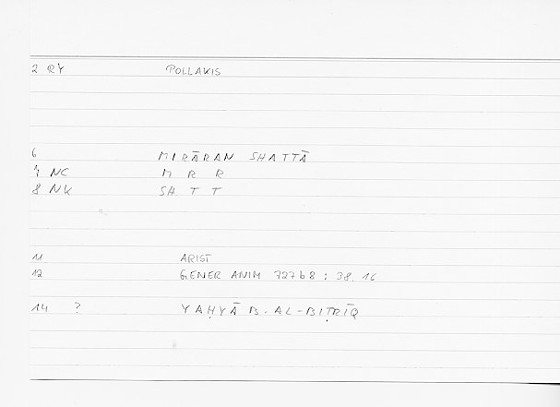 2 RY POLLAKIS
6 MIRĀRAN SHATTĀ
7 NC M R R
8 NK SH T T
11 ARIST
12 GENER ANIM 727b8 ; 38.16
14 ? YAḤYĀ B. AL-BIṬRĪQ